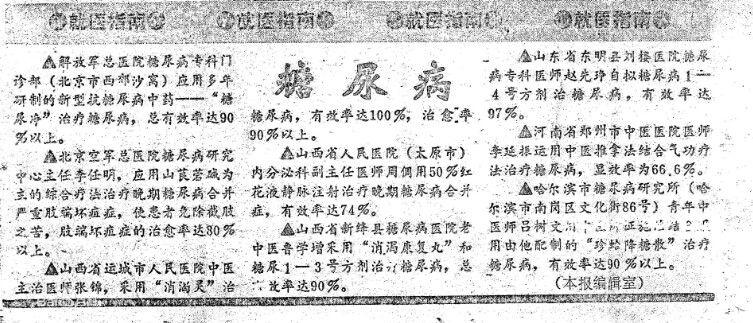 就医指南 就医指南 就医指南 就医指南
糖尿病
▲解放军总医院糖尿病专科门
诊部（北京市西郊沙窝）应用多年
研制的新型抗糖尿病中药——“糖
尿净”治疗糖尿病，总有效率达90
%以上。
▲北京空军总医院糖尿病研究
中心主任李任明，应用山莨菪碱为
主的综合疗法治疗晚期糖尿病合并
严重肢端坏疽症，使患者免除截肢
之苦，肢端坏疽症的治愈率达80%
以上。
▲山西省运城市人民医院中医
主治医师张锦，采用“消渴灵”治
糖尿病，有效率达100%，治愈率
90%以上。
▲山西省人民医院（太原市）
内分泌科副主任医师周倜用50%红
花液静脉注射治疗晚期糖尿病合并
症，有效率达74%。
▲山西省新绛县糖尿病医院老
中医鲁学增采用“消渴康复丸”和
糖尿1—3号方剂治疗糖尿病，总
有效率达90%。
▲山东省东明县刘楼医院糖尿
病专科医师赵光 自拟糖尿病1—
4号方剂治糖尿病，有效率达
97%。
▲河南省郑州市中医医院医师
李延振运用中医推拿法结合气功疗
法治疗糖尿病，显效率为66.6%。
▲哈尔滨市糖尿病研究所（哈
尔滨市南岗区文化街86号）青年中
医师吕树文用中医辨证施
用由他配制的“珍蛤降糖散”治疗
糖尿病，有效率达90%以上。
（本报编辑室）